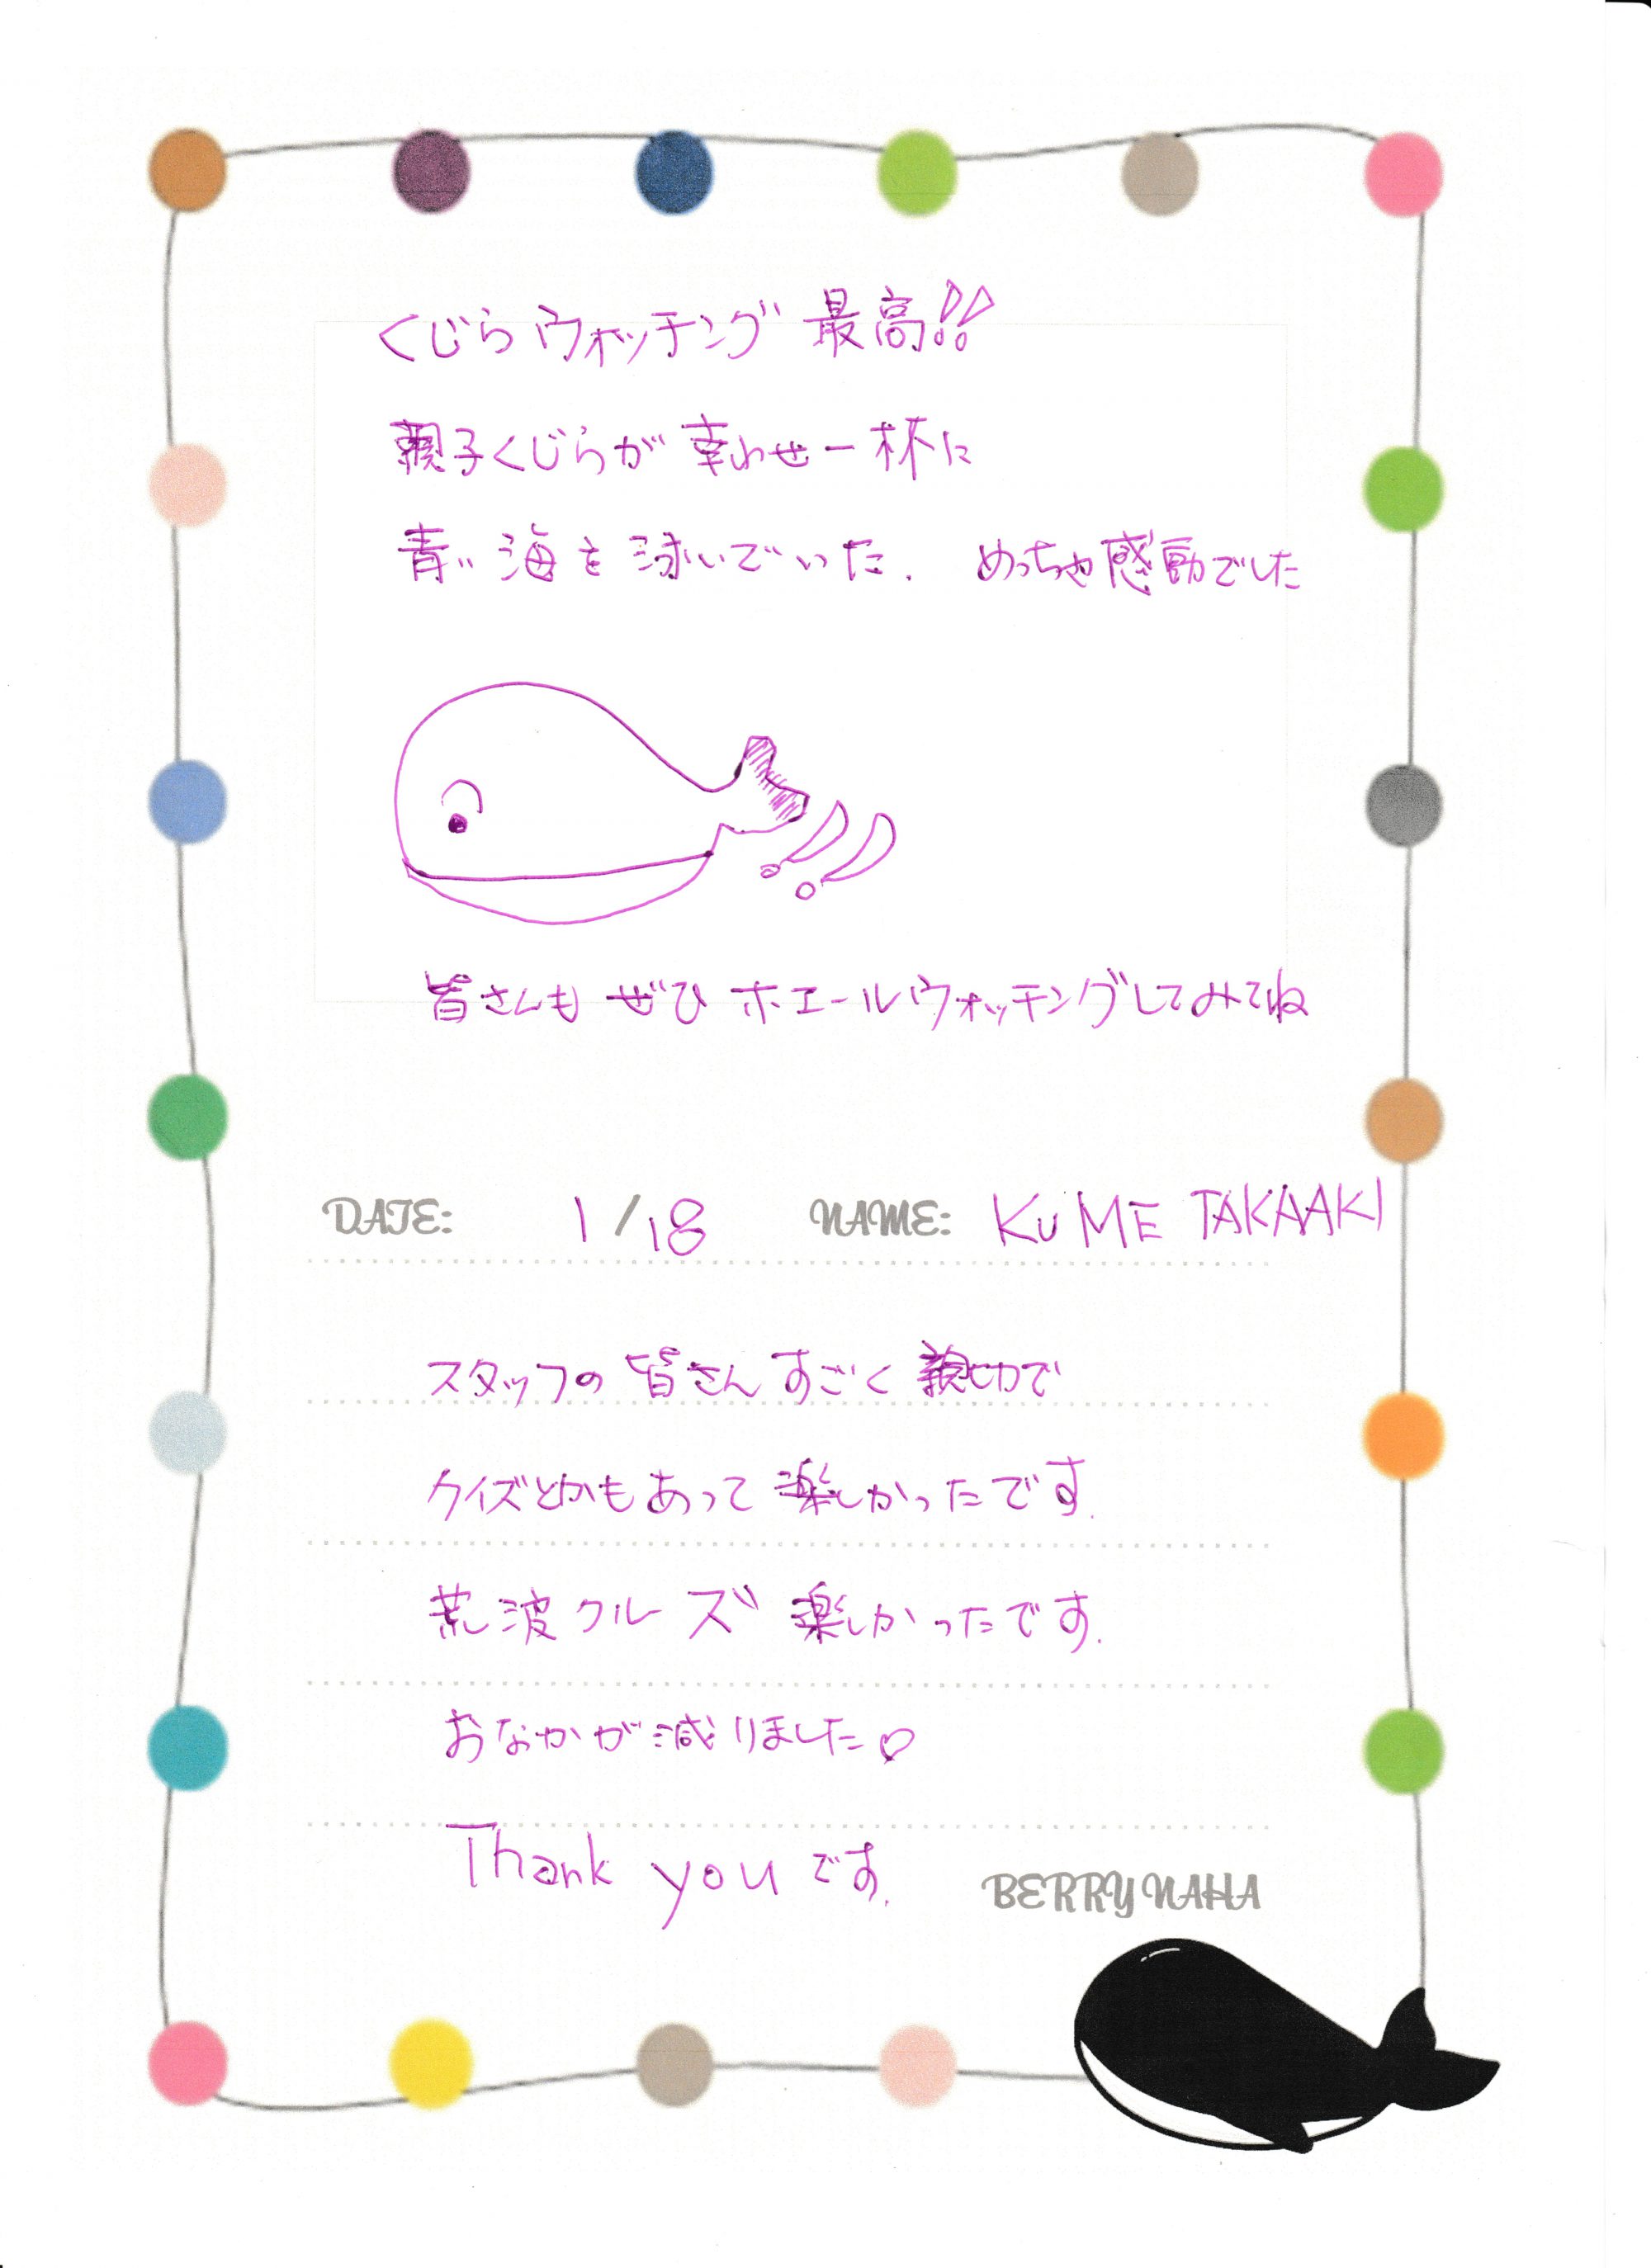 くじらウォッチング 最高!!
親子くじらが 幸わせ一杯に
青い 海を 泳いでいた. めっちゃ感動でした
皆さんも ぜひ ホエールウォッチングしてみてね
DATE: 1/18 NAME: KUME TAKAAKI
スタッフの 皆さん すごく 親切で
クイズとかもあって 楽しかったです.
荒波クルーズ 楽しかったです.
おなかが減りました♡
Thank you です.
BERRY NAHA